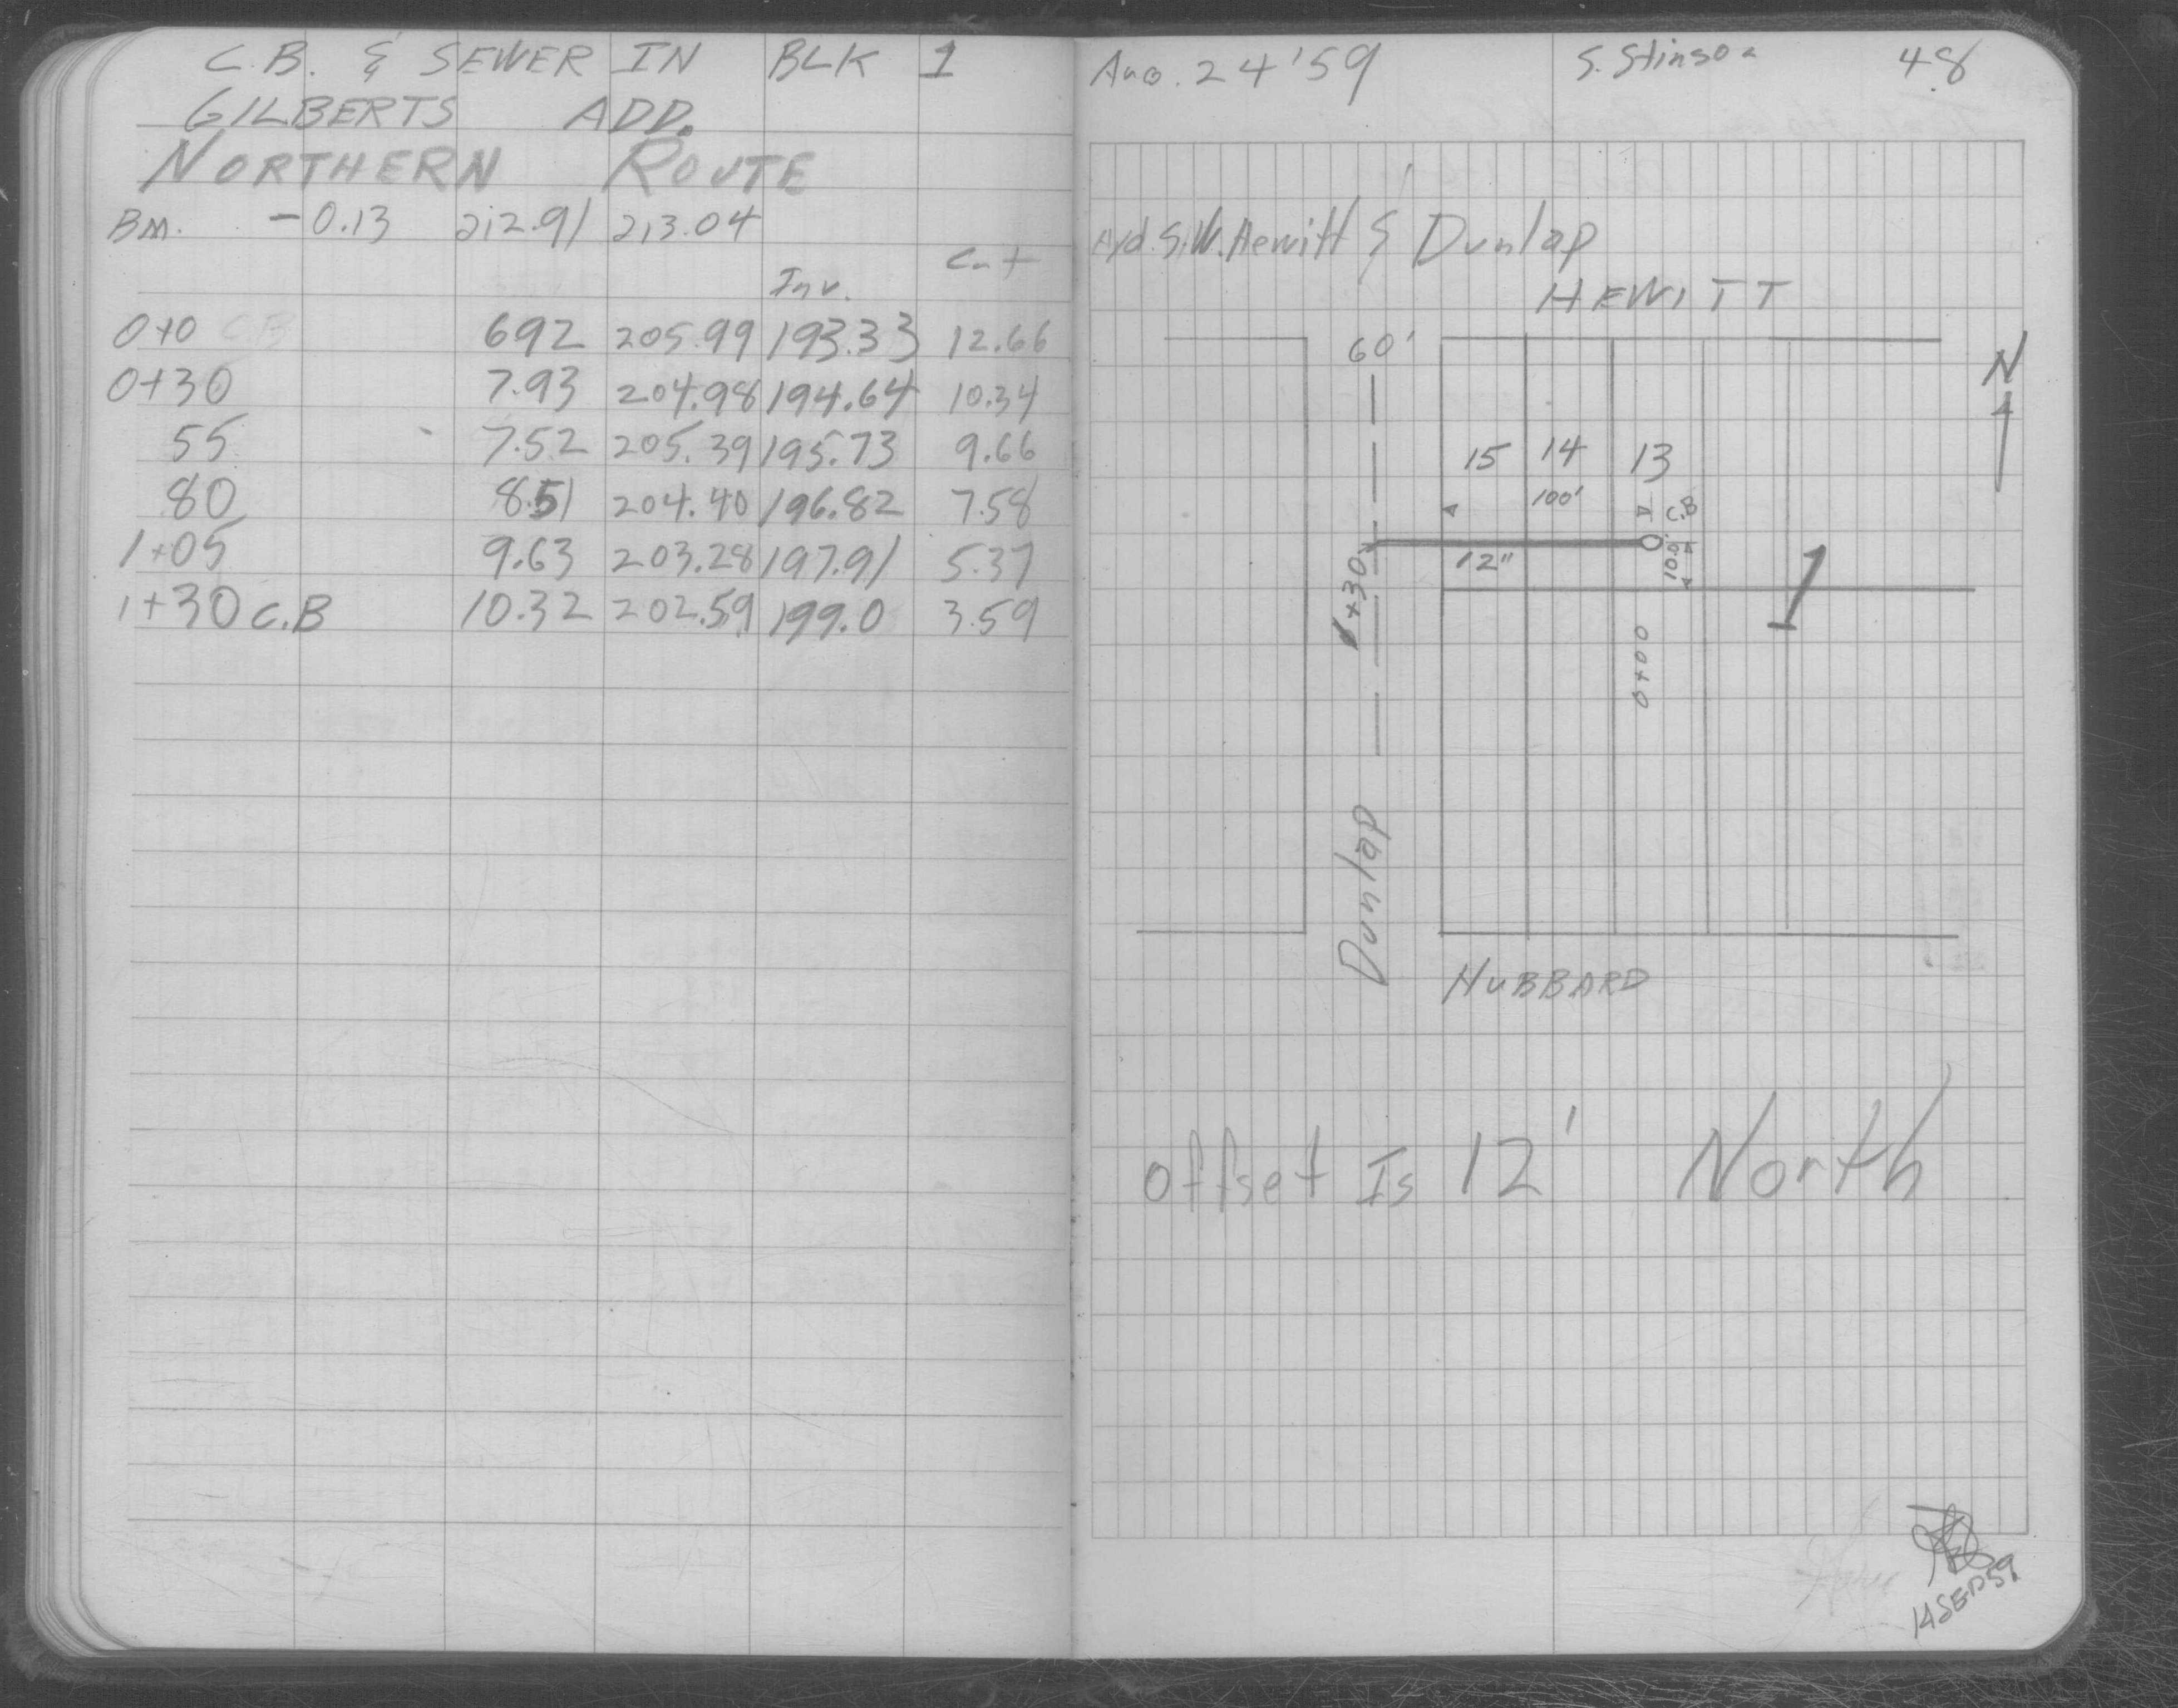 C.B. & SEWER IN BLK 1
GILBERTS ADD.
NORTHERN ROUTE
BM. -0.13 212.91 213.04
Inv. Cut
0+0 CB 692 205.99 193.33 12.66
0+30 7.93 204.98 194.64 10.34
55 7.52 205.39 195.73 9.66
80 8.51 204.40 196.82 7.58
1+05 9.63 203.28 197.91 5.37
1+30 C.B 10.32 202.59 199.0 3.59
Aug. 24 '59 S. Stinson 48
Hyd. S.W. Hewitt & Dunlap
HEWITT
60'
N
15 14 13
100'
C.B
12"
10.0'
1+30
1
0+00
Dunlap
HUBBARD
Offset Is 12' North
14SEP59